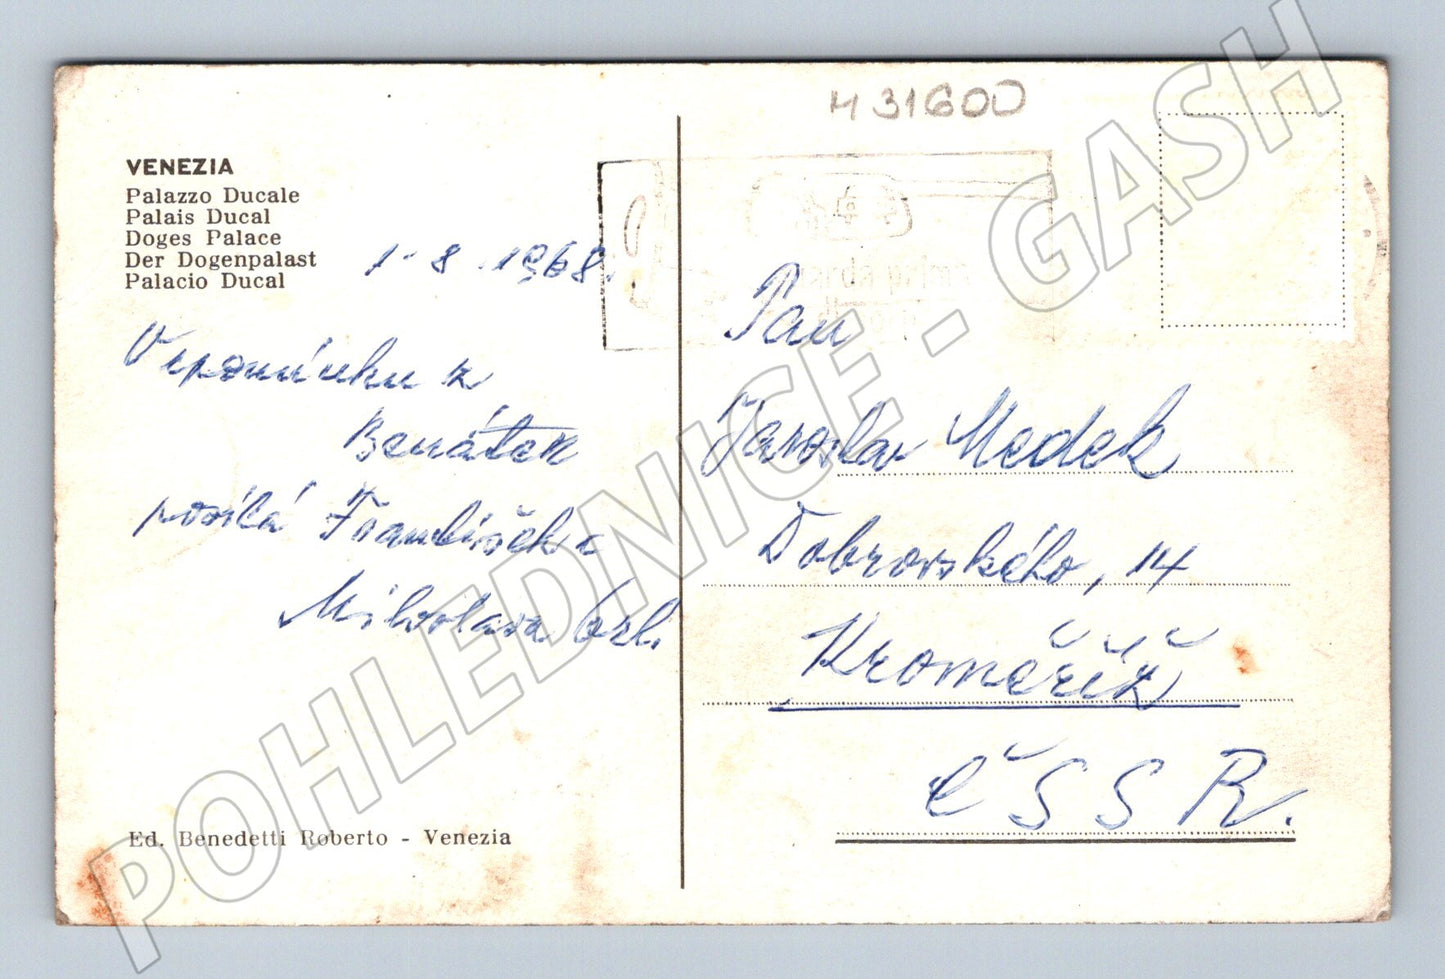 H 31600
VENEZIA
Palazzo Ducale
Palais Ducal
Doges Palace
Der Dogenpalast
Palacio Ducal
1.8.1968.
Vzpomínku z
Benátek
posílá František
Miloslava
Ed. Benedetti Roberto - Venezia
guarda prima
Pan
Jaroslav Medek
Dobrovského, 14
Kroměříž
ČSSR.
POHLEDNICE - GASH